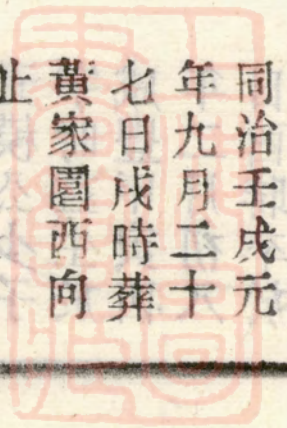 同治壬戌元
年九月二十
七日戌時葬
黃家園西向
止